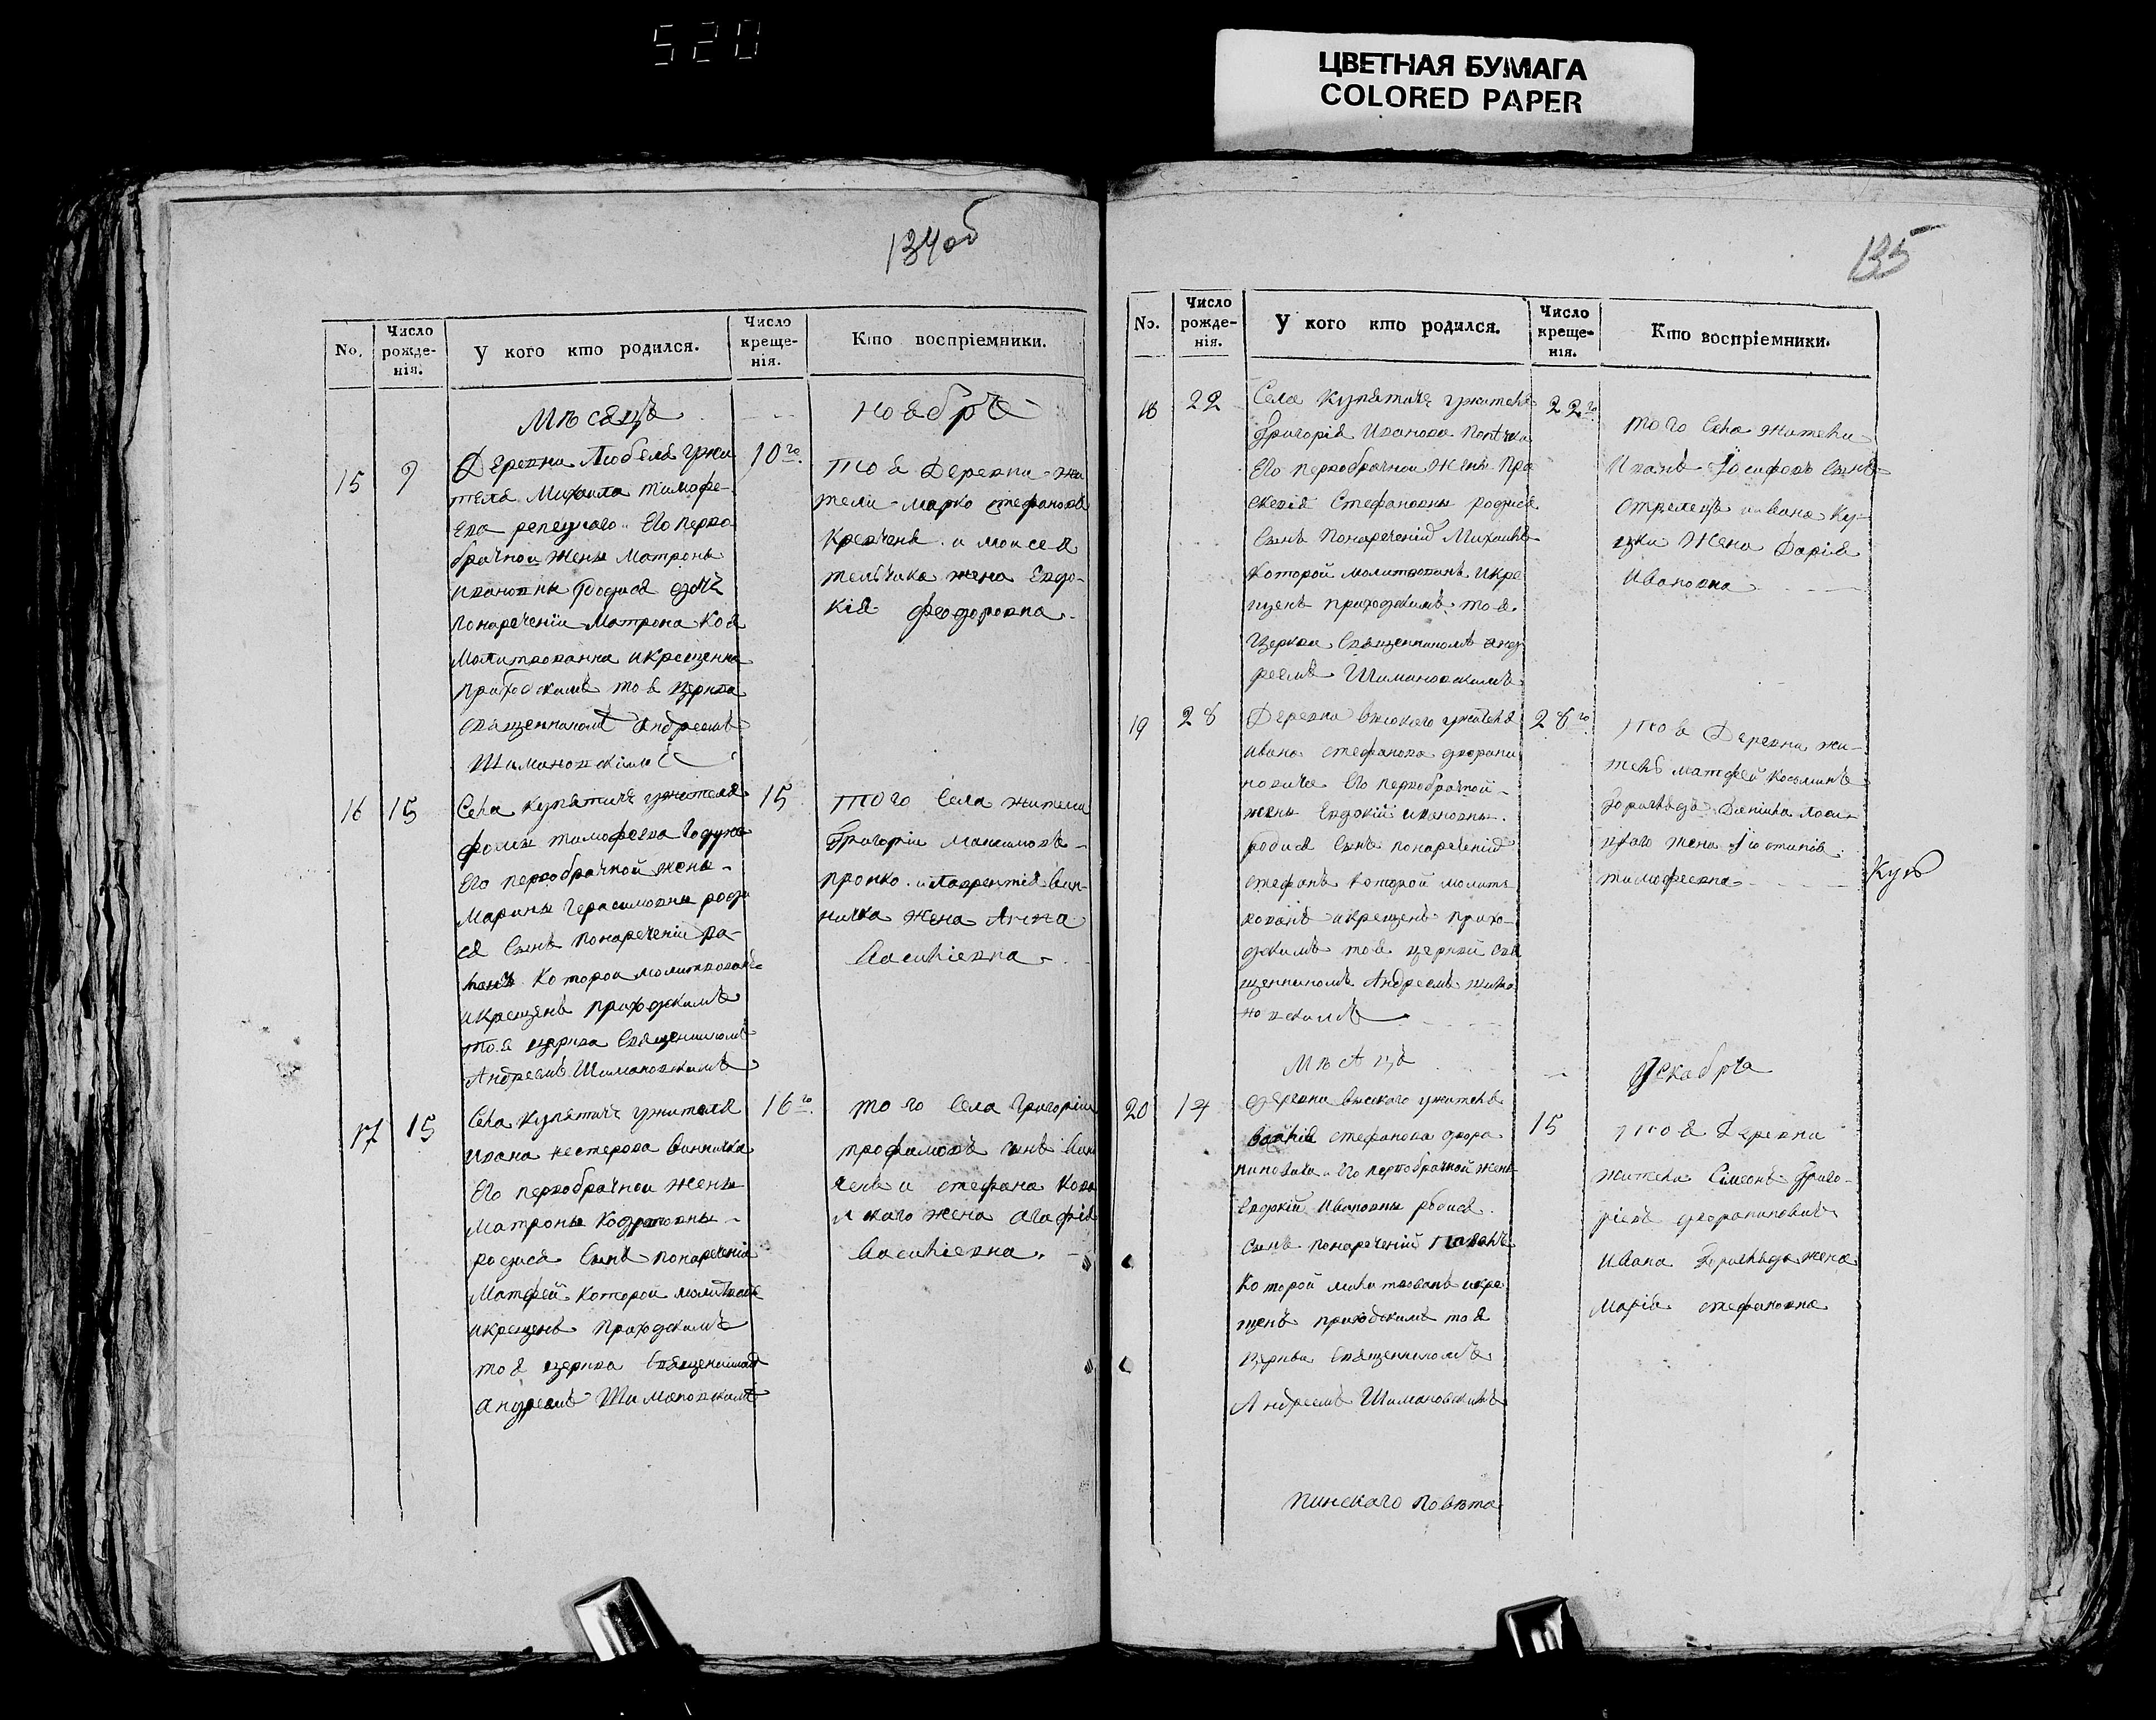 520
ЦВЕТНАЯ БУМАГА
COLORED PAPER
134об
No.
Число рожде-нія.
У кого кто родился.
Число креще-нія.
Кто воспріемники.
Мѣсяцъ
Ноябрь
15
9
Деревни Любеля ужи
теля Михаила тимофе-
Его перво
брачной жены Матроны
ивановны Родися дочь
понаречении Матрона Коя
Молитвованна и крещенна
приходскимъ тоя церкви
священникомъ андреемъ
Шимановскимъ
10го
тоя Деревни жи
тели марко стефановъ
Кравченъ и моисея
жена Евдо-
кія феодоровна
16
15
Села купятичъ ужителя
фомы тимофеева
Его первобрачной жены
Марины Герасимовны роди
ся сынъ понаречении
Которой молитвованъ
и крещенъ приходскимъ
тоя церкви священникомъ
Андреемъ Шимановскимъ
15
того Села жители
Григорій Максимовъ
пронко и Лаврентія Вин-
ничка жена Анна
Василіевна
17
15
Села купятичъ ужителя
ивана нестерова винничка
Его первобрачной жены
Матроны Кодратовны
родися сынъ понаречении
Матфей Которой молитвованъ
и крещенъ Приходскимъ
тоя церкви священникомъ
андреемъ Шимановскимъ
16го
того Села Григорій
трофимовъ сынъ
и стефана Кова
жена агафія
Василіевна
135
No.
Число рожде-нія.
У кого кто родился.
Число креще-нія.
Кто воспріемники.
18
22
Села Купятичъ ужителя
Григорія Иванова
Его первобрачной жены Пра
скевія Стефановны родися
сынъ понареченій Михаилъ
которой молитвованъ и кре
щенъ приходскимъ тоя
Церкви священникомъ анд
реемъ Шимановскимъ
22го
того Села жители
Иванъ Іосифовъ сынъ
стрелецъ и ивана Ку-
цки Жена Дарія
Ивановна
19
28
Деревни высокого ужителя
ивана стефанова дворани
новича Его первобрачной
жены Евдокій ивановны
родися сынъ понареченій
стефанъ которой молит
вованъ и крещенъ прихо-
дскимъ тоя церкви свя
щенникомъ Андреемъ шима
новскимъ
28го
тоя Деревни жи-
тель матфей Косьминъ
жена Іюстинія
тимофеевна
Куп
Мѣсяцъ
Декабрь
20
14
деревни высокого ужителя
стефанова двора
ниновича Его первобрачной жены
Евдокій Ивановны родися
сынъ понареченій
Которой молитвованъ и кре
щенъ приходскимъ тоя
Церкви священникомъ
Андреемъ Шимановскимъ
15
тоя Деревни
жители Сімеонъ Григо-
ріевъ дворанинович
Ивана жена
Марія стефановна
пинского повѣта